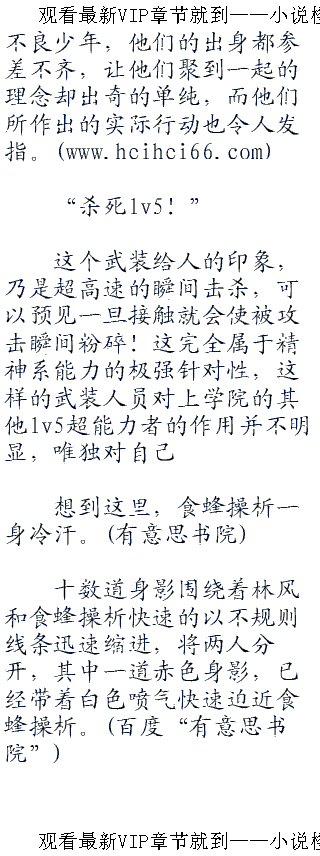 观看最新VIP章节就到——小说
不良少年，他们的出身都参
差不齐，让他们聚到一起的
理念却出奇的单纯，而他们
所作出的实际行动也令人发
指。(www.hcihci66.com)
“杀死lv5！”
这个武装给人的印象，
乃是超高速的瞬间击杀，可
以预见一旦接触就会使被攻
击瞬间粉碎！这完全属于精
神系能力的极强针对性，这
样的武装人员对上学院的其
他lv5超能力者的作用并不明
显，唯独对自己
想到这里，食蜂操析一
身冷汗。(有意思书院)
十数道身影围绕着林风
和食蜂操析快速的以不规则
线条迅速缩进，将两人分
开，其中一道赤色身影，已
经带着白色喷气快速迫近食
蜂操析。(百度“有意思书
院”)
观看最新VIP章节就到——小说